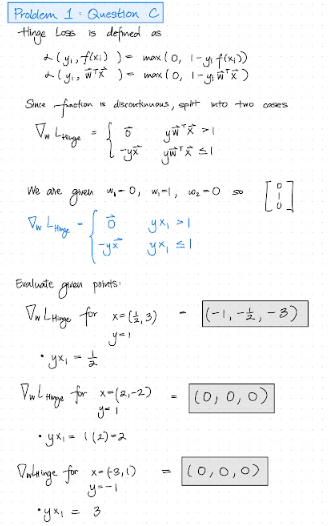 Problem 1: Question C
Hinge Loss is defined as
L(yᵢ, f(xᵢ)) = max(0, 1-yᵢ f(xᵢ))
L(yᵢ, w⃗ᵀx⃗) = max(0, 1-yᵢ w⃗ᵀx⃗)
Since function is discontinuous, split into two cases
∇w L Hinge = { 0⃗ yw⃗ᵀx⃗ > 1
-yx⃗ yw⃗ᵀx⃗ ≤ 1
We are given w₀ = 0, w₁ = 1, w₂ = 0 so [0 1 0]
∇w L Hinge = { 0⃗ yx₁ > 1
-yx⃗ yx₁ ≤ 1
Evaluate given points:
∇w L Hinge for x=(½, 3) = (-1, -½, -3)
y=1
• yx₁ = ½
∇w L Hinge for x=(2,-2) = (0, 0, 0)
y=1
• yx₁ = 1(2)=2
∇w L Hinge for x=(-3,1) = (0, 0, 0)
y=-1
• yx₁ = 3